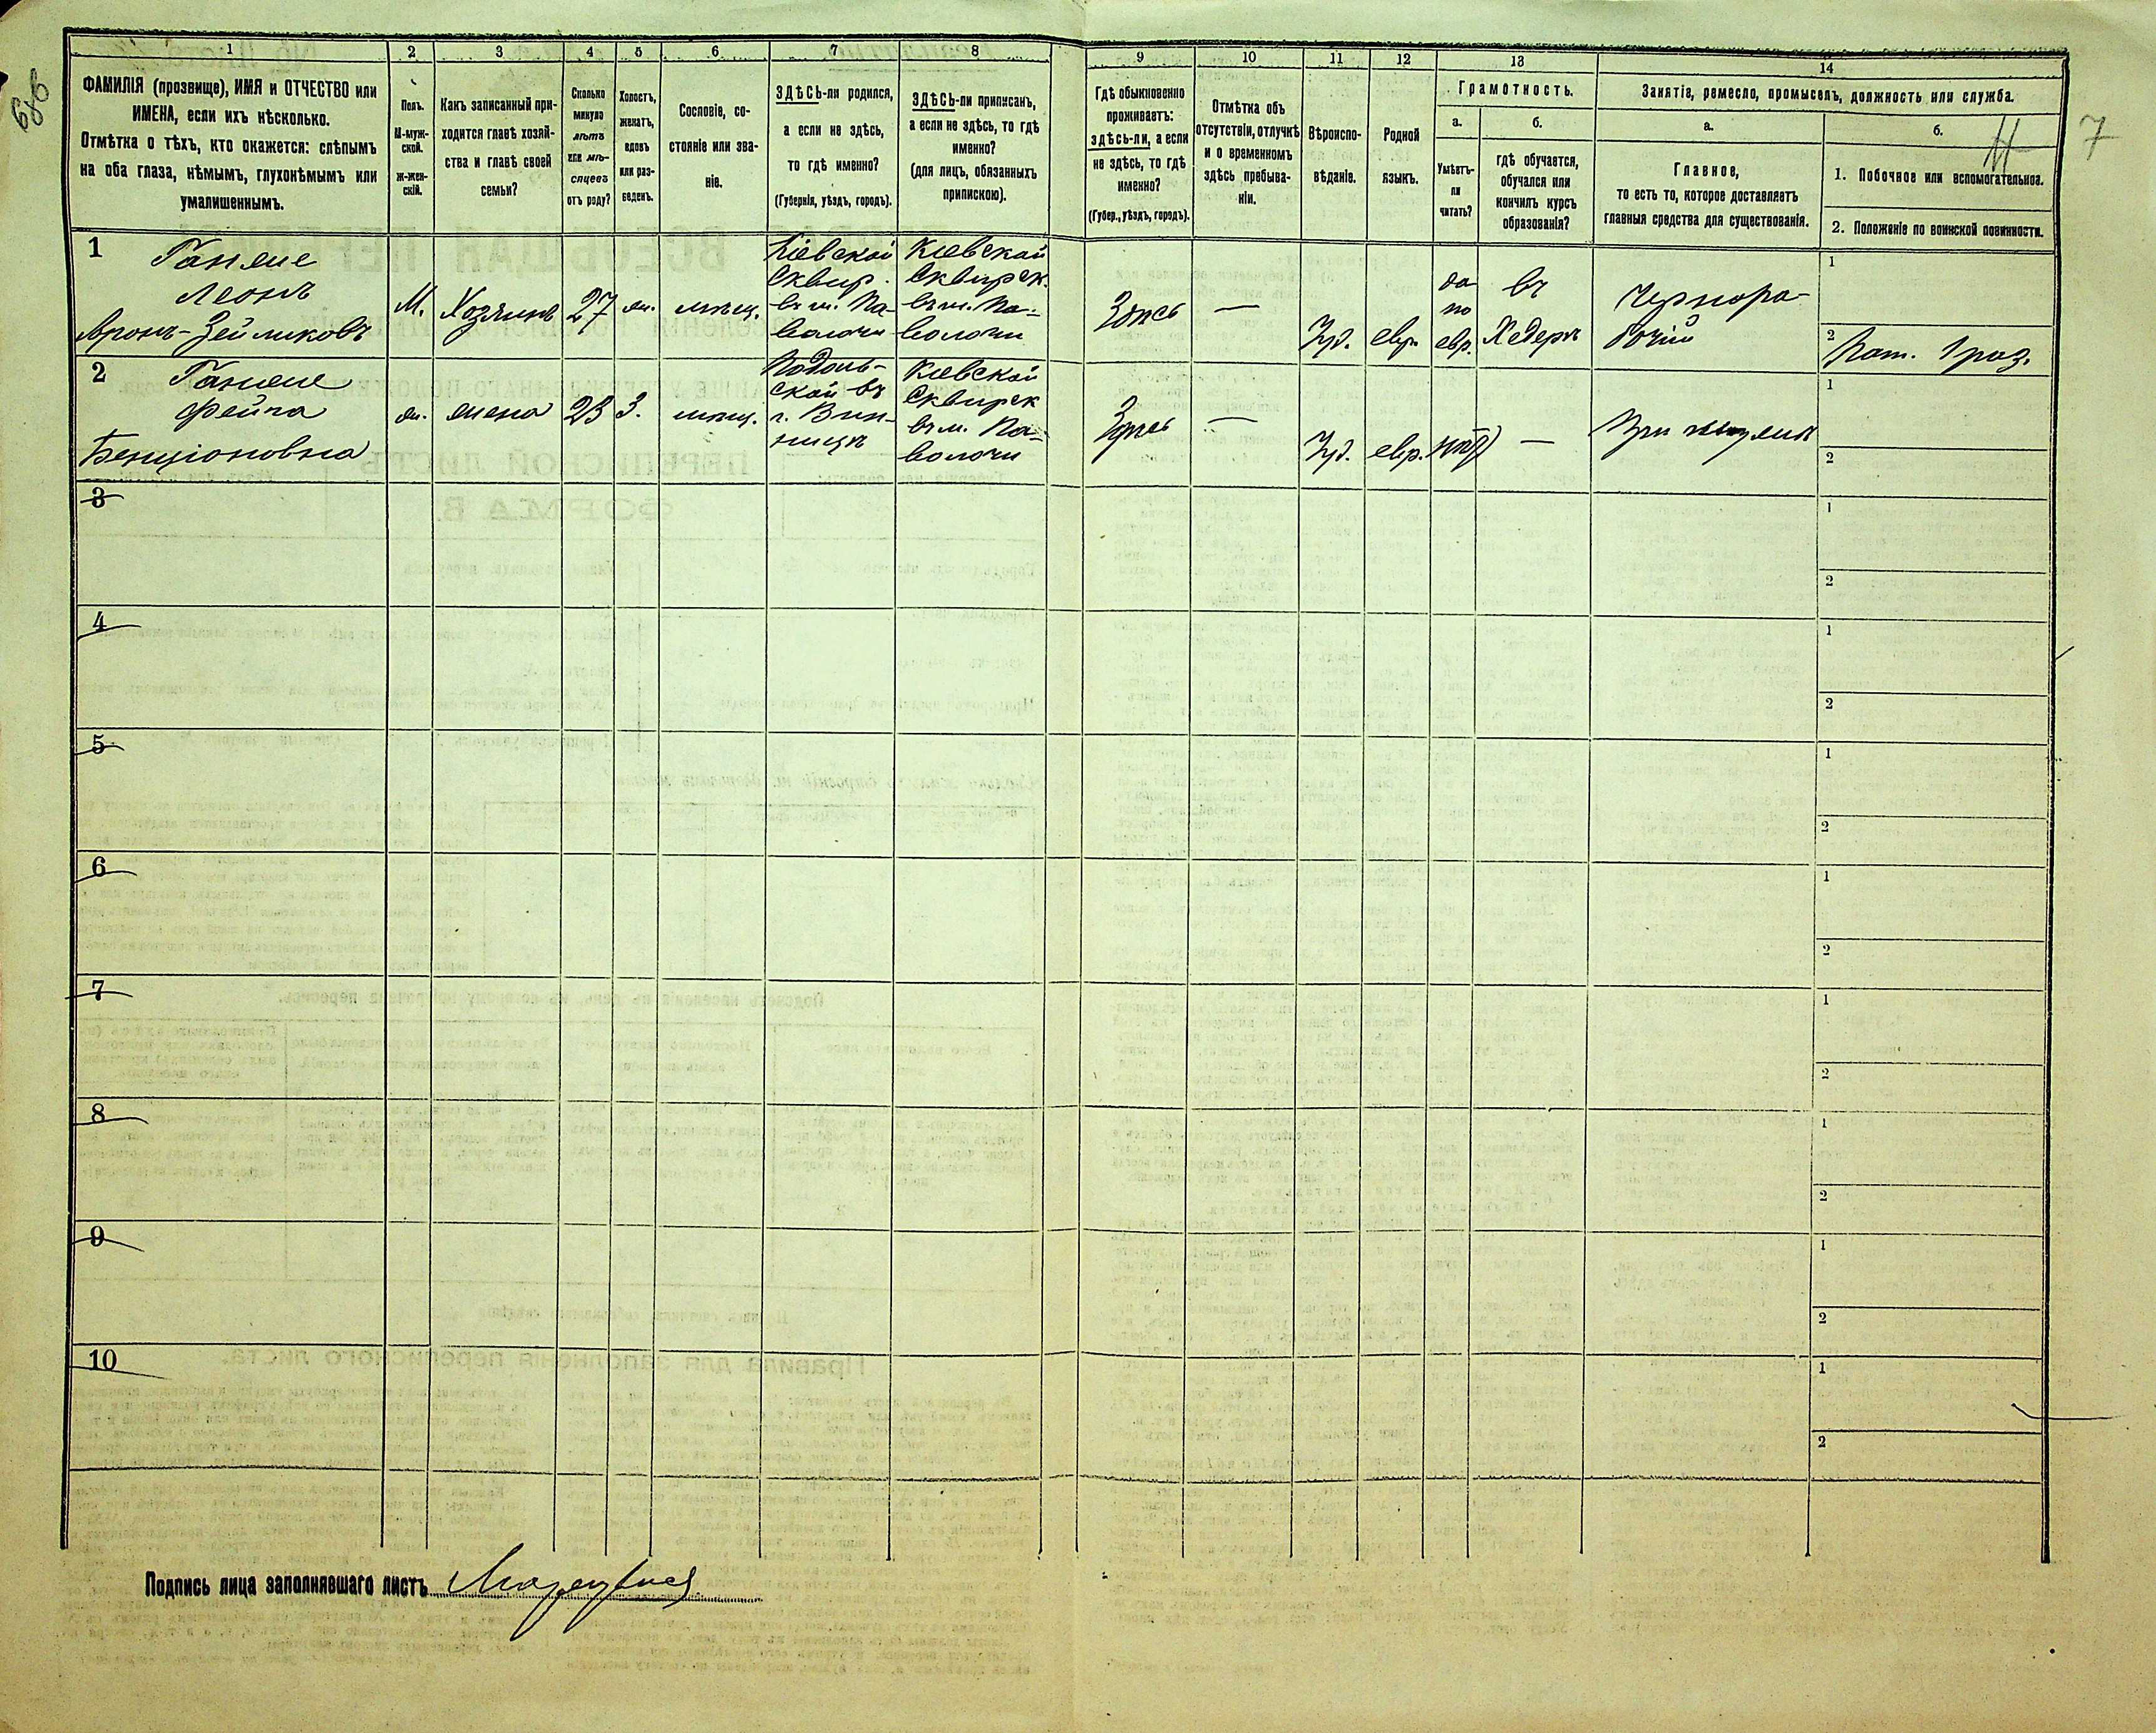 686
7
1
2
3
4
5
6
7
8
9
10
11
12
13
14
ФАМИЛІЯ (прозвище), ИМЯ и ОТЧЕСТВО или
ИМЕНА, если ихъ нѣсколько.
Отмѣтка о тѣхъ, кто окажется: слѣпымъ
на оба глаза, нѣмымъ, глухонѣмымъ или
умалишеннымъ.
Полъ.
М-муж-
ской.
Ж-жен-
скій.
Какъ записанный при-
ходится главѣ хозяй-
ства и главѣ своей
семьи?
Сколько
минуло
лѣтъ
или мѣ-
сяцевъ
отъ роду?
Холостъ,
женатъ,
вдовъ
или раз-
веденъ.
Сословіе, со-
стояніе или зва-
ніе.
ЗДѢСЬ-ли родился,
а если не здѣсь,
то гдѣ именно?
(Губернія, уѣздъ, городъ).
ЗДѢСЬ-ли приписанъ,
а если не здѣсь, то гдѣ
именно?
(для лицъ, обязанныхъ
припискою).
Гдѣ обыкновенно
проживаетъ:
здѣсь-ли, а если
не здѣсь, то гдѣ
именно?
(Губер., уѣздъ, городъ).
Отмѣтка объ
отсутствіи, отлучкѣ
и о временномъ
здѣсь пребыва-
ніи.
Вѣроиспо-
вѣданіе.
Родной
языкъ.
Грамотность.
а.
Умѣетъ-
ли
читать?
б.
гдѣ обучается,
обучался или
кончилъ курсъ
образованія?
Занятія, ремесло, промыселъ, должность или служба.
а.
Главное,
то есть то, которое доставляетъ
главныя средства для существованія.
б.
1. Побочное или вспомогательное.
2. Положеніе по воинской повинности.
1
Ганже
Леонъ
Аронъ-Зейликовъ
М.
Хозяинъ
27
ж.
мѣщ.
Кіевской
Сквир.
въ м. Па-
волочи
Кіевской
Сквирск.
въ м. Па-
волочи
Здѣсь
—
Іуд.
евр.
да
по
евр.
въ
Хедерѣ
Чернора-
бочій
1
2
Рат. 1 раз.
2
Ганже
Фейга
Бенціоновна
ж.
жена
23
З.
мѣщ.
Подоль-
ской въ
г. Вин-
ницѣ
Кіевской
Сквирск
въ м. Па-
волочи
Здѣсь
—
Іуд.
евр.
нѣтъ
—
При мужѣ
1
2
3
1
2
4
1
2
5
1
2
6
1
2
7
1
2
8
1
2
9
1
2
10
1
2
Подпись лица заполнявшаго листъ